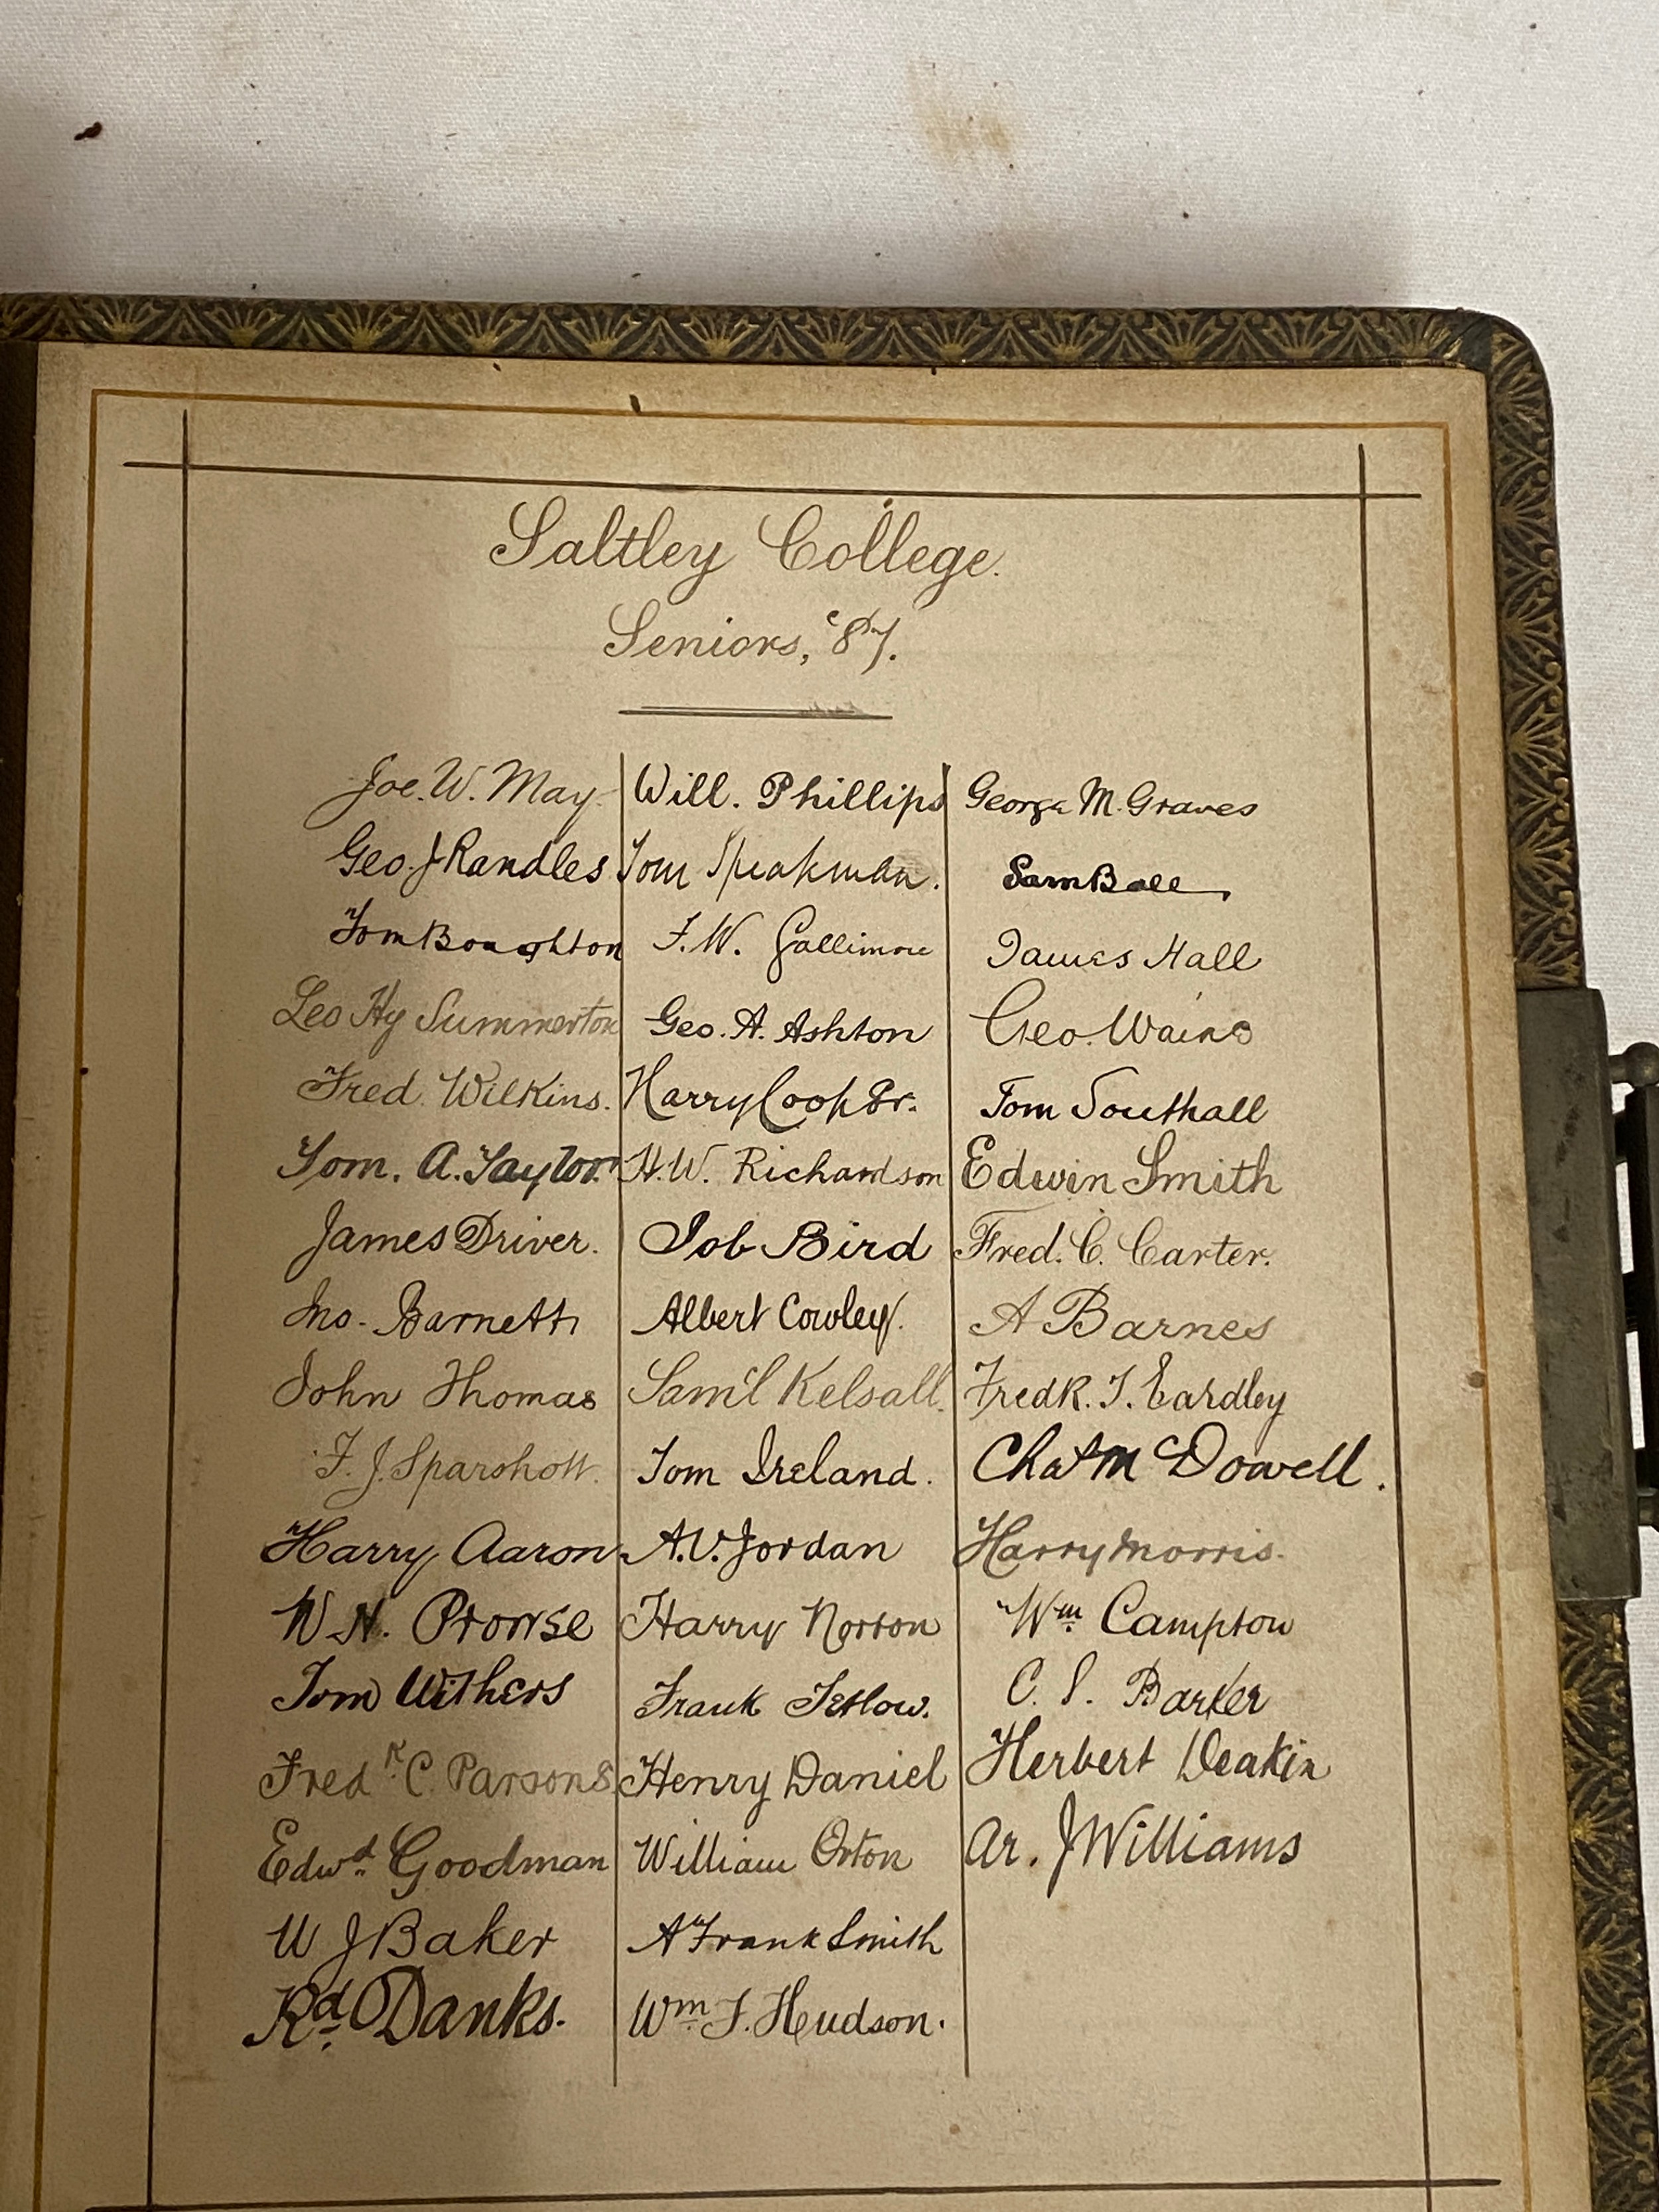 Saltley College.
Seniors, '87.
Joe. W. May
Geo. J Randles
Tom Boughton
Leo Hy Summerton
Fred. Wilkins.
Tom. A. Taylor
James Driver.
Jno. Barnett
John Thomas
F. J. Sparshott.
Harry Aaron
W. H. Prowse
Tom Withers
Fredk. C. Parsons
Edwd. Goodman
W J Baker
Rd. Danks.
Will. Phillips
Tom Speakman.
F. W. Gallimore
Geo. A. Ashton
Harry Cook
H. W. Richardson
Job Bird
Albert Cowley.
Sam'l Kelsall.
Tom Ireland.
A. V. Jordan
Harry Norton
Frank Tetlow.
Henry Daniel
William Orton
A Frank Smith
Wm. F. Hudson.
George M. Graves
Sam Ball
James Hall
Geo. Wains
Tom Southall
Edwin Smith
Fred. C. Carter.
A Barnes
Fredk. T. Eardley
Dowell.
Harry Morris.
Wm. Campton
C. S. Barker
Herbert Deakin
Ar. J Williams